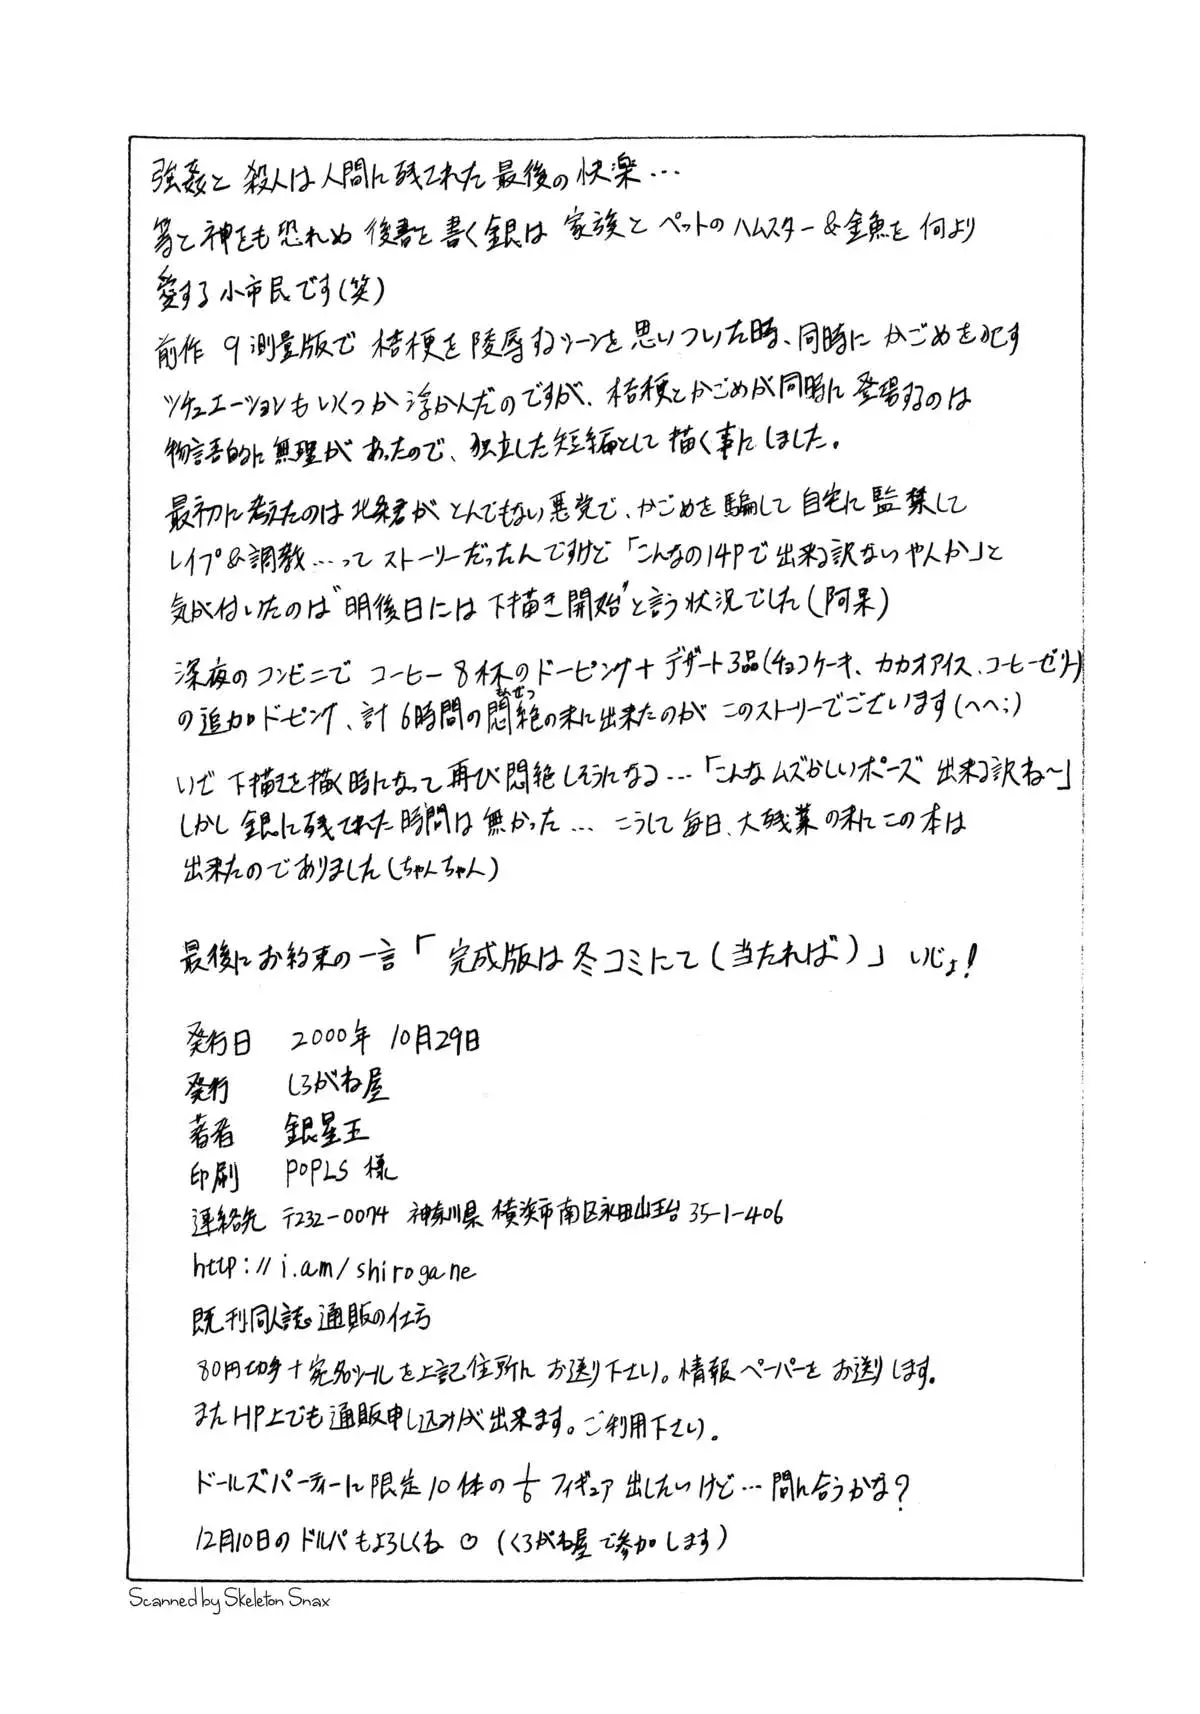 強姦と殺人は人間に残された最後の快楽…
等と神をも恐れぬ後書を書く銀は家族とペットのハムスター&金魚を何より
愛する小市民です(笑)
前作9測量版で桔梗を陵辱するシーンを思いついた時、同時にかごめを犯す
シチュエーションもいくつか浮かんだのですが、桔梗とかごめが同時に登場するのは
物語的に無理があったので、独立した短編として描く事にしました。
最初に考えたのは北条君がとんでもない悪党で、かごめを騙して自宅に監禁して
レイプ&調教…ってストーリーだったんですけど「こんなの14Pで出来る訳ないやんか」と
気が付いたのは"明後日には下描き開始"と言う状況でした(阿呆)
深夜のコンビニでコーヒー8杯のドーピング+デザート3品(チョコケーキ、カカオアイス、コーヒーゼリー)
の追加ドーピング、計6時間の悶絶の末に出来たのがこのストーリーでございます(へへ;)
いざ下描きを描く時になって再び悶絶しそうになる…「こんなムズかしいポーズ出来る訳ね〜」
しかし銀に残された時間は無かった…こうして毎日、大残業の末にこの本は
出来たのでありました(ちゃんちゃん)
最後にお約束の一言「完成版は冬コミにて(当たれば)」いじょ!
発行日 2000年10月29日
発行 しろがね屋
著者 銀星王
印刷 POPLS様
連絡先 〒232-0074 神奈川県横浜市南区永田山王台35-1-406
http://i.am/shirogane
既刊同人誌通販の仕方
80円切手+宛名シールを上記住所にお送り下さい。情報ペーパーをお送りします。
またHP上でも通販申し込みが出来ます。ご利用下さい。
ドールズパーティーに限定10体の1/6フィギュア出したいけど…間に合うかな?
12月10日のドルパもよろしくね♡(くろがね屋で参加します)
Scanned by Skeleton Snax